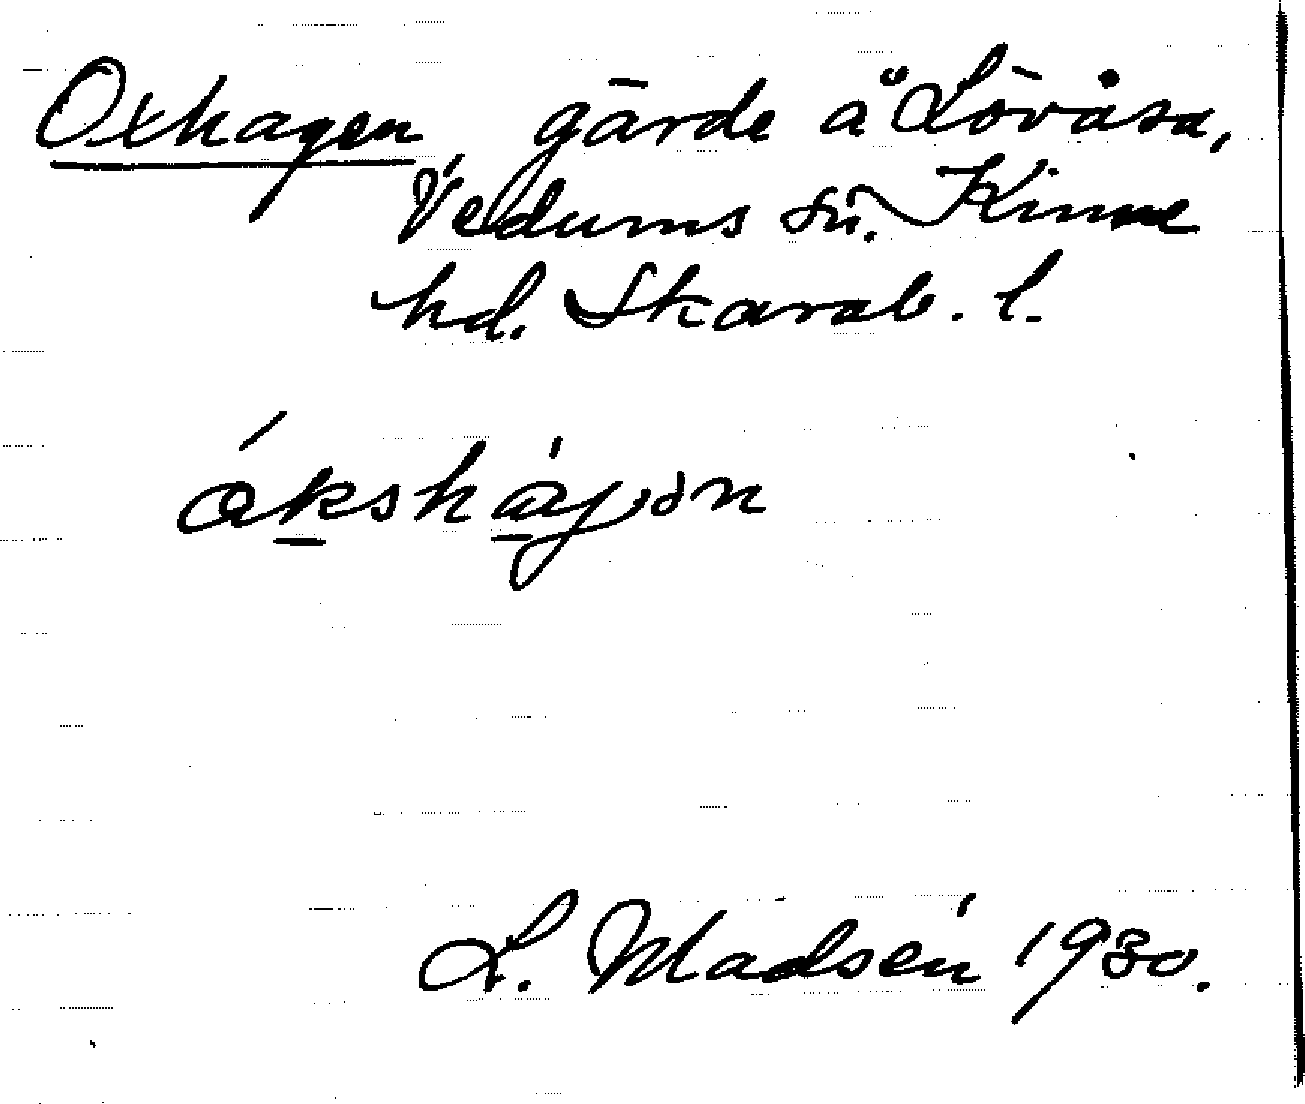 Oxhagen, gärde å Lövåsa,
Vedums sn. Kinne
hd. Skarab. l.
ákshàgən
L. Madsén 1930.